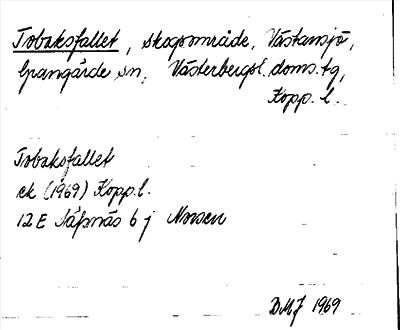 Tobaksfallet, skogsområde, Västansjö,
Grangärde sn, Västerbergsl. doms. tg,
Kopp. l.
Tobaksfallet
ek (1969) Kopp. l.
12 E Säfsnäs 6 j Norsen
DMJ 1969